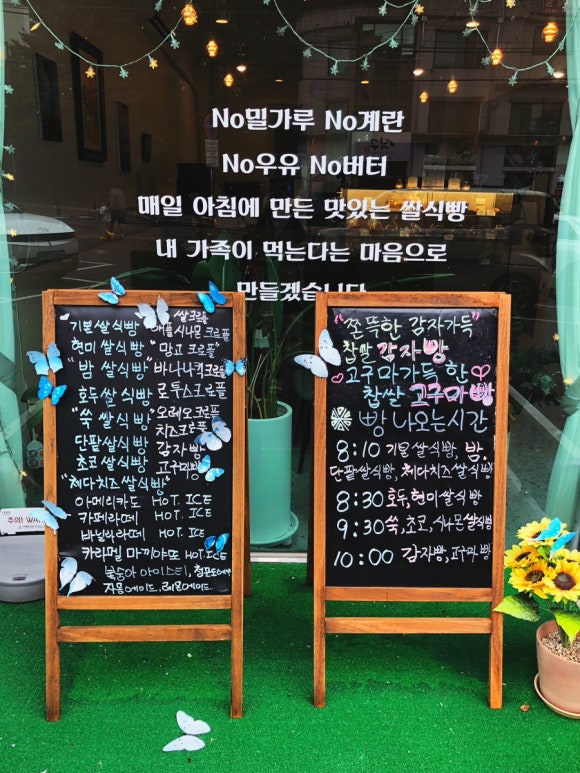 No밀가루 No계란
No우유 No버터
매일 아침에 만든 맛있는 쌀식빵
내 가족이 먹는다는 마음으로
만들겠습니다
기본쌀식빵
현미 쌀식빵
"밤 쌀식빵"
호두쌀식빵
"쑥 쌀식빵"
단팥쌀식빵
초코쌀식빵
"체다치즈쌀식빵"
쌀크로플
애플시나몬 크로플
"망고 크로플"
바나나킥크로플
로투스크로플
오레오크로플
치즈크로플
감자빵
고구마빵
아메리카도 HOT. ICE
카페라떼 HOT. ICE
바닐라라떼 HOT. ICE
카라멜 마끼야또 HOT. ICE
복숭아 아이스티,
자몽에이드, 레몬에이드
"쫀뜩한 감자가득"
찹쌀감자빵
고구마가득 한
찹쌀 고구마빵
빵 나오는시간
8:10 기본쌀식빵, 밤,
단팥쌀식빵, 체다치즈쌀식빵
8:30 호두,현미쌀식빵
9:30 쑥,초코,시나몬쌀식빵
10:00 감자빵,고구마빵
주의!